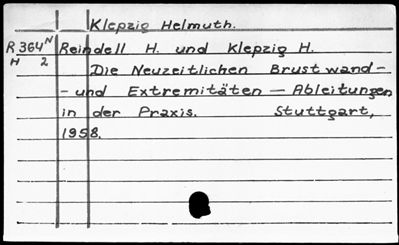 Klepzig Helmuth.
R 364 N Reindell H. und Klepzig H.
H 2 Die Neuzeitlichen Brustwand-
- und Extremitäten — Ableitungen
in der Praxis. Stuttgart,
1958.